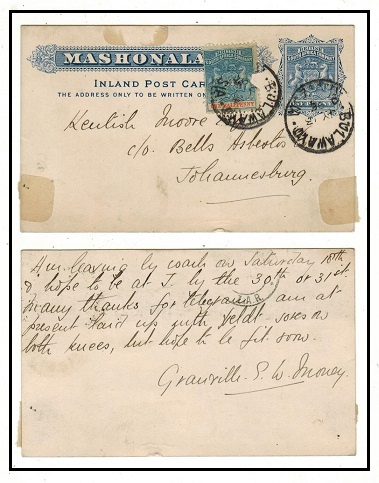 MASHONALA
INLAND POST CAR
THE ADDRESS ONLY TO BE WRITTEN ON
BULAWAYO
BULAWAYO
Kentish Moore
c/o Bells Asbestos
Johannesburg.
Am leaving by coach on Saturday 18th
& hope to be at J. by the 30th or 31st.
many thanks for telegram am at
present laid up with veldt-sores on
both knees, but hope to be fit soon.
Granville. E. W. Money.